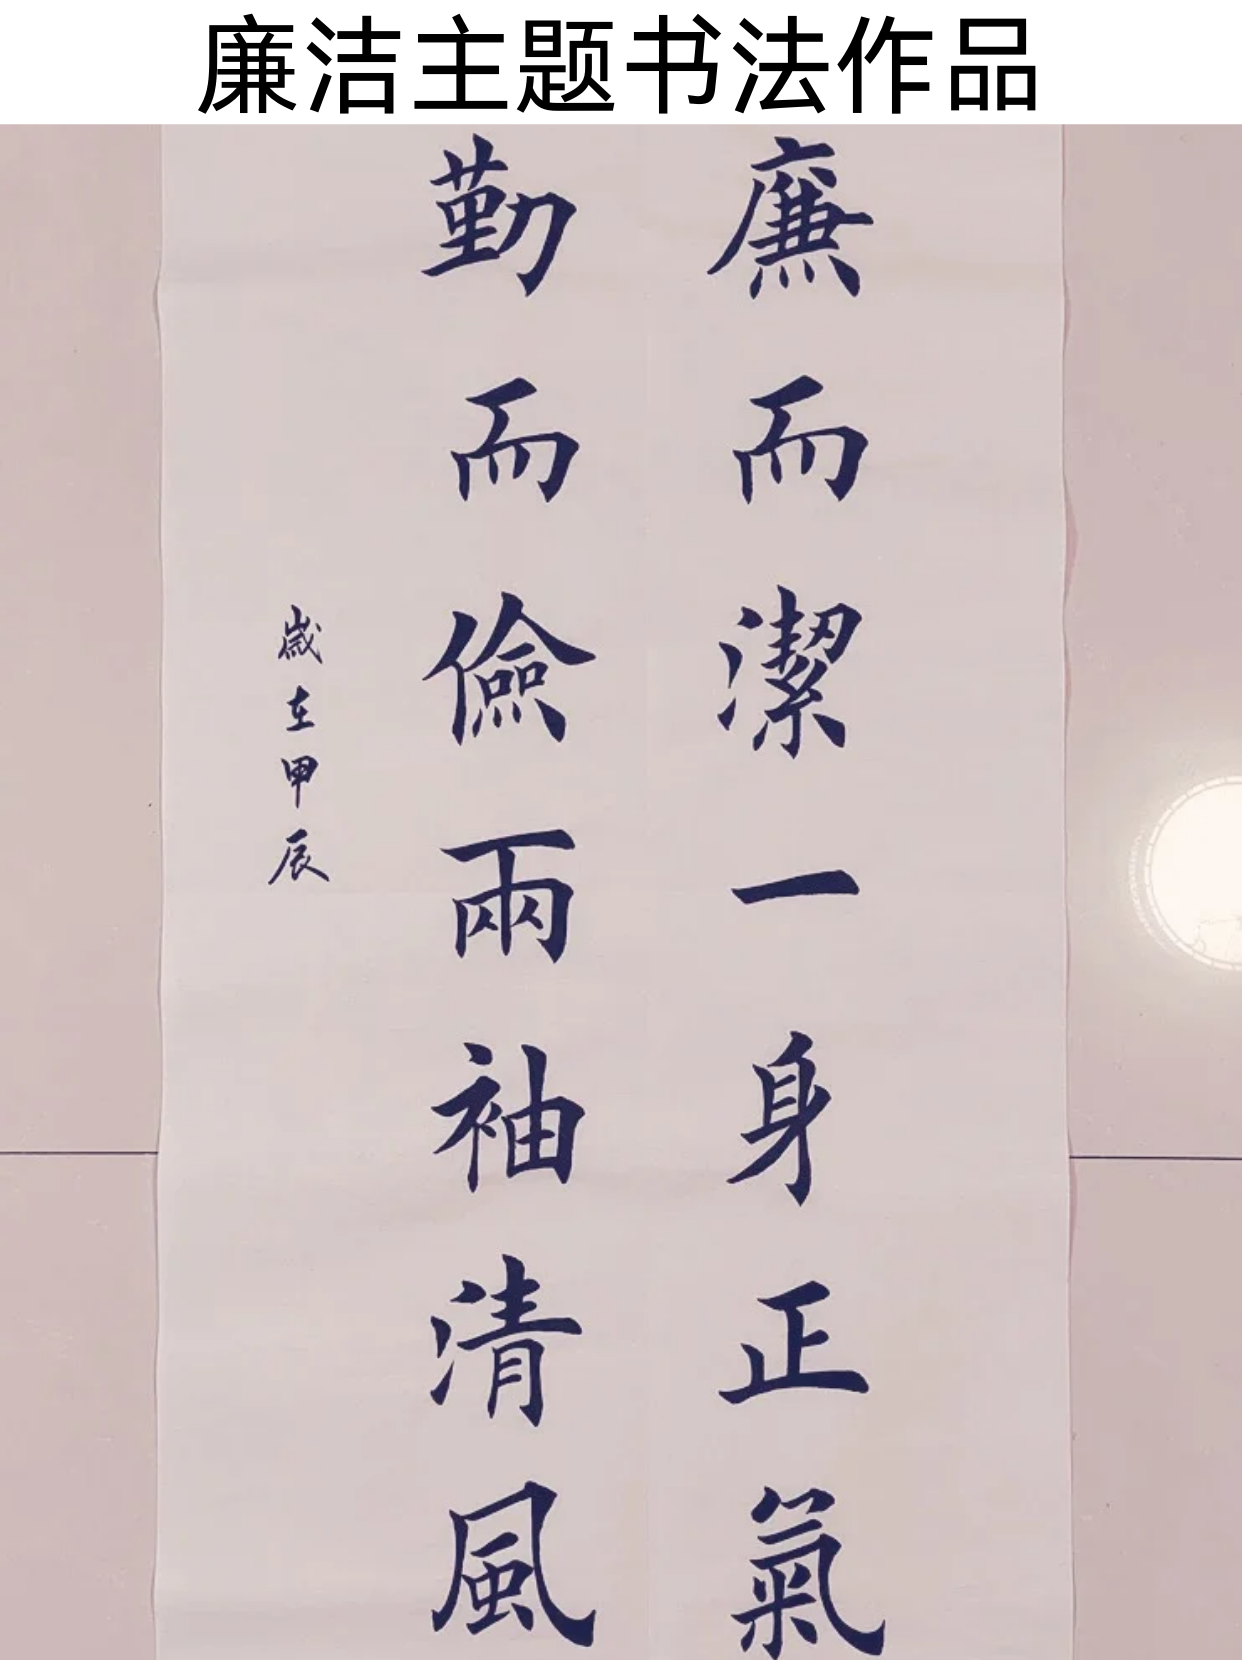 廉洁主题书法作品
廉而潔一身正氣
勤而儉兩袖清風
歲在甲辰